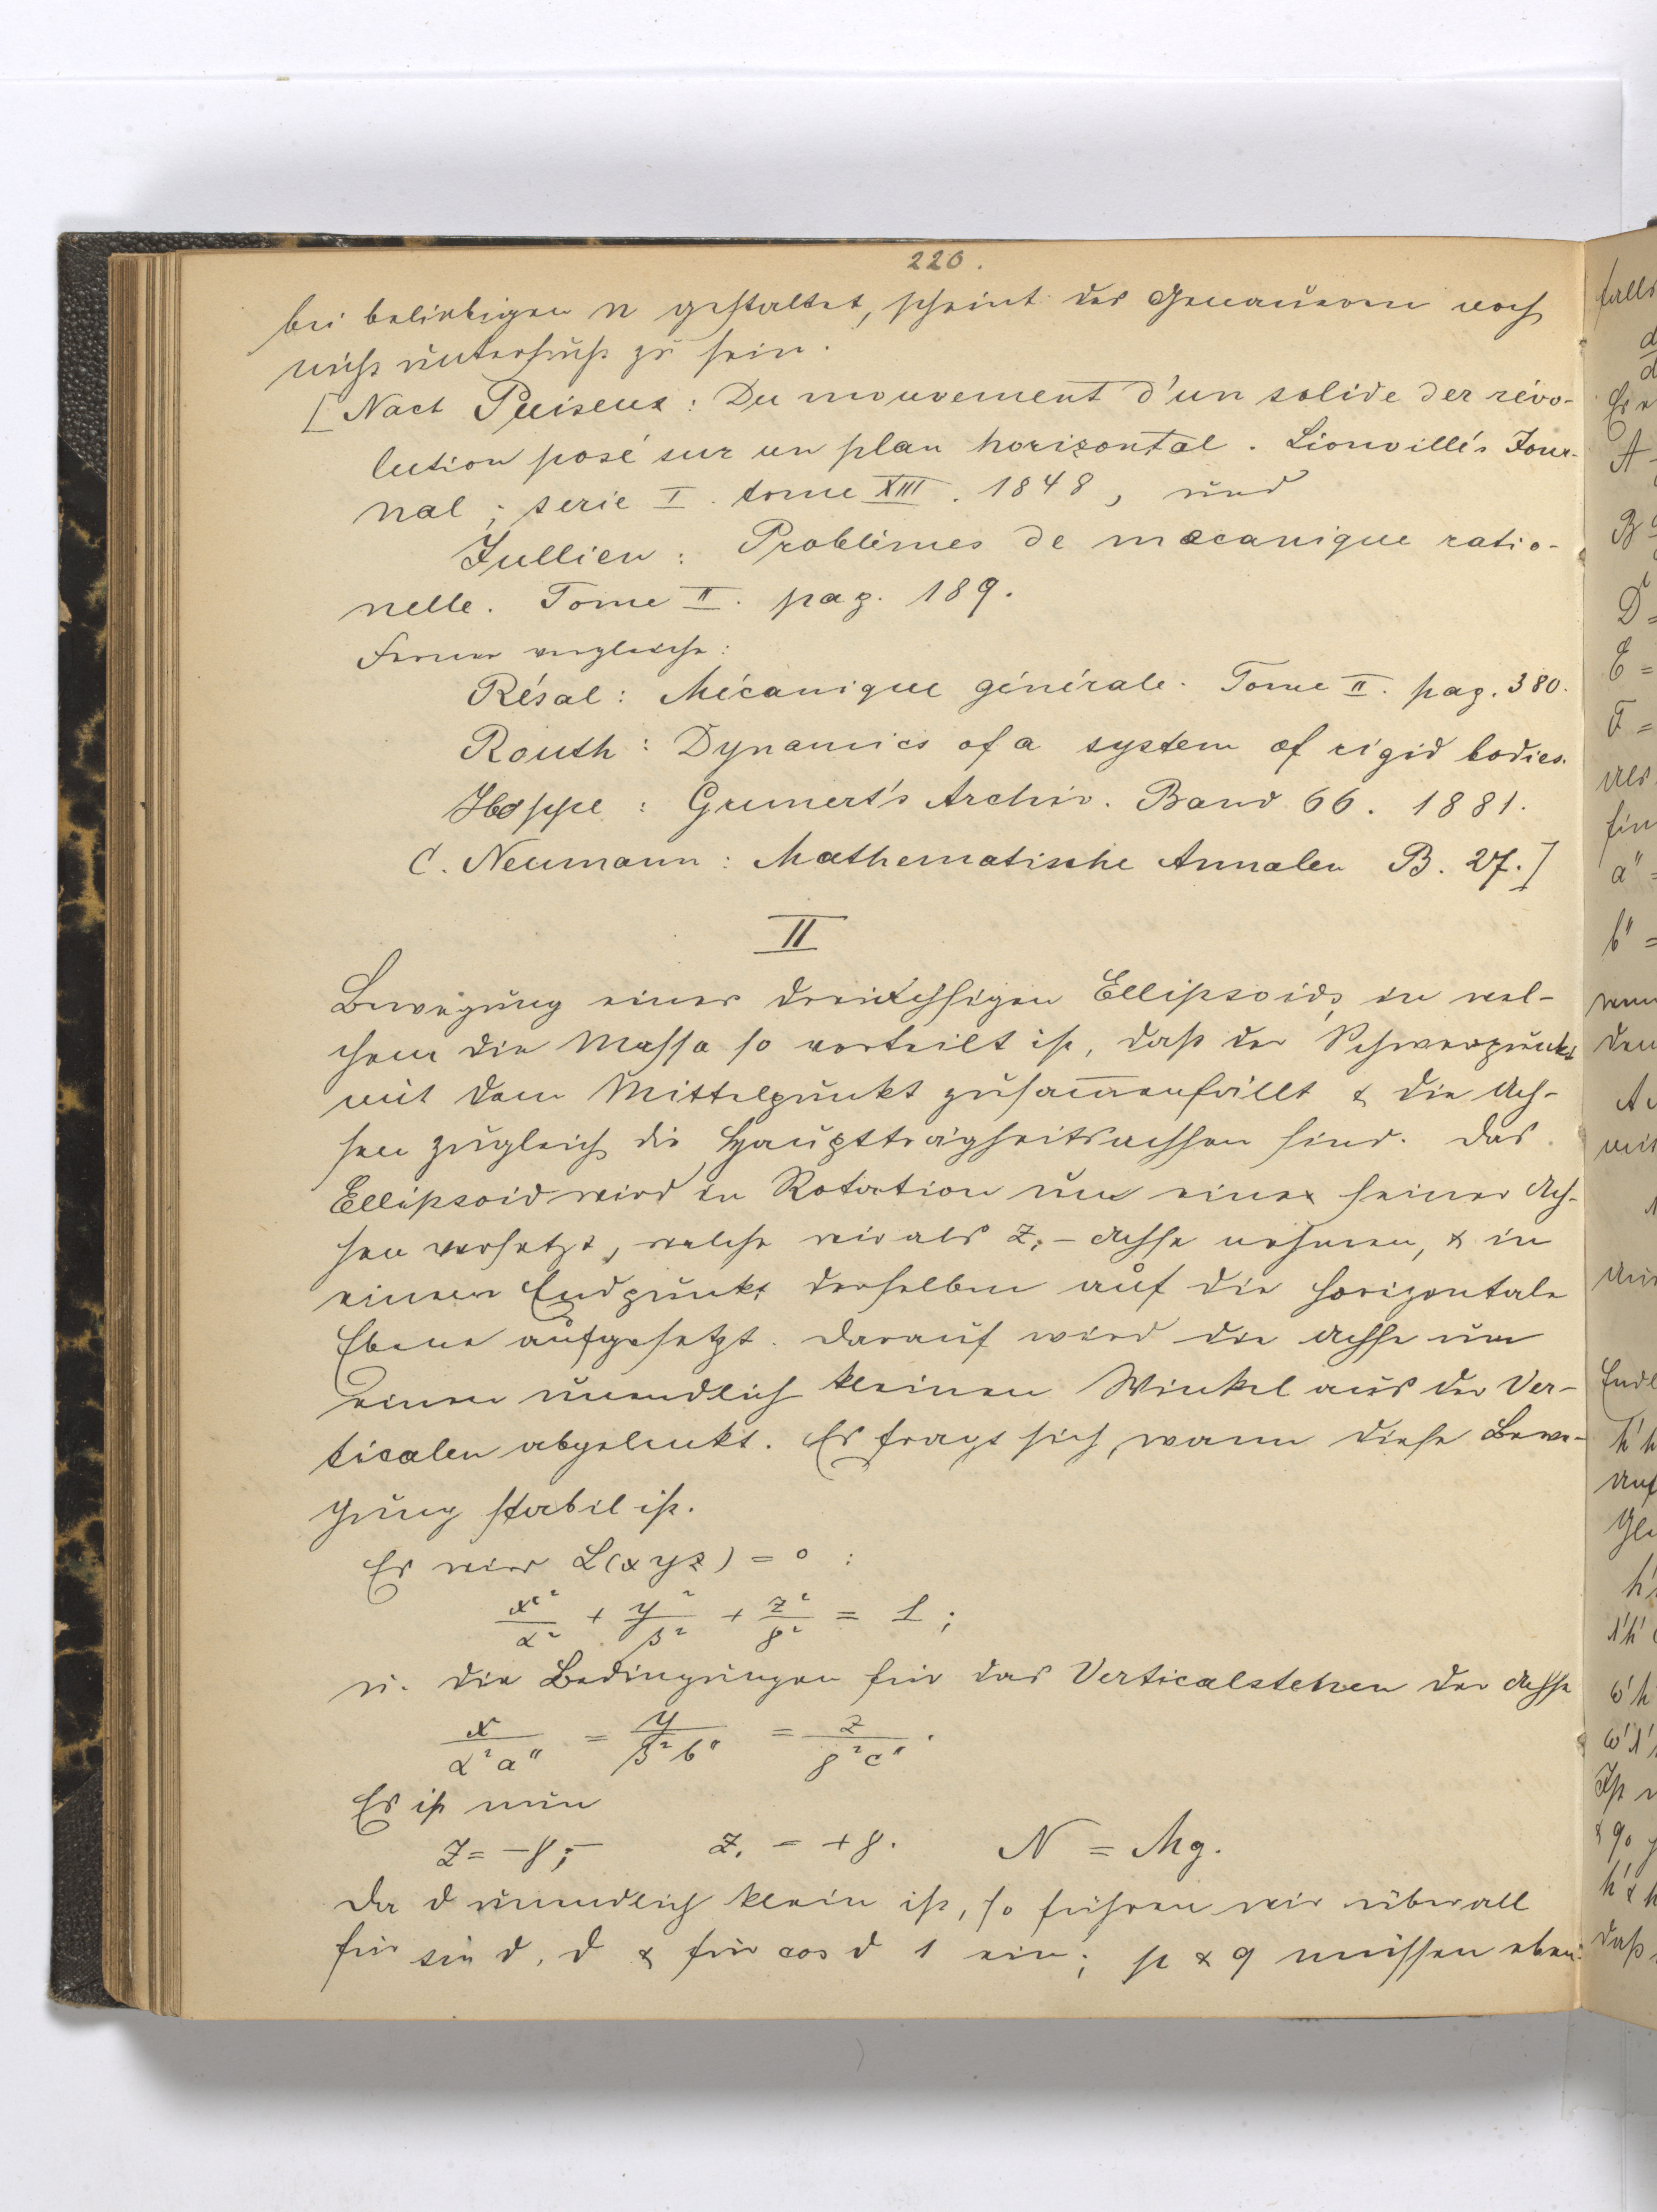 220.
bei beliebigen n gestaltet, scheint des Genaueren noch
nicht untersucht zu sein.
[Nach Puiseux: Du mouvement d'un solide der révo-
lution posé sur un plan horizontal. Liouville's Jour-
nal; serie I. tome XIII. 1848, und
Jullien: Problèmes de mécanique ratio-
nelle. Tome II. pag. 189.
Ferner vergleiche:
Résal: Mécanique générale. Tome II. pag. 380.
Routh: Dynamics of a system of rigid bodies.
Hoppe: Grunert's Archiv. Band 66. 1881.
C. Neumann: Mathematische Annalen B. 27.]
II
Bewegung eines dreiachsigen Ellipsoids, in wel-
chem die Masse so verteilt ist, daß der Schwerpunkt
mit dem Mittelpunkt zusam̅enfällt & die Ach-
sen zugleich die Hauptträgheitsachsen sind. Das
Ellipsoid wird in Rotation um eine seiner Ach-
sen versetzt, welche wir als Z₁-Achse nehmen, & in
einem Endpunkt derselben auf die horizontale
Ebene aufgesetzt. Darauf wird die Achse um
einen unendlich kleinen Winkel aus der Ver-
ticalen abgelenkt. Es fragt sich, wann diese Bewe-
gung stabil ist.
Es wird L(xyz) = 0 :
x²/α² + y²/β² + z²/γ² = 1;
u. die Bedingungen für das Verticalstehen der Achse
x/α²a" = y/β²b" = z/γ²c".
Es ist nun
z = -γ; z₁ = +γ. N = Mg.
Da ϑ unendlich klein ist, so führen wir überall
für sin ϑ, ϑ & für cos ϑ 1 ein; p & q müssen eben-